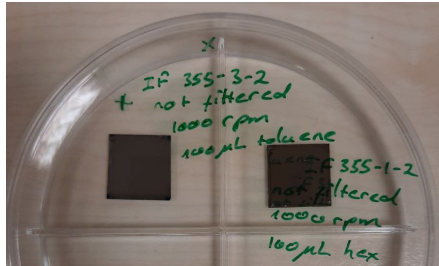 x
+ IF 355-3-2
not filtered
1000 rpm
100 µL toluene
IF 355-1-2
not filtered
1000 rpm
100 µL hex